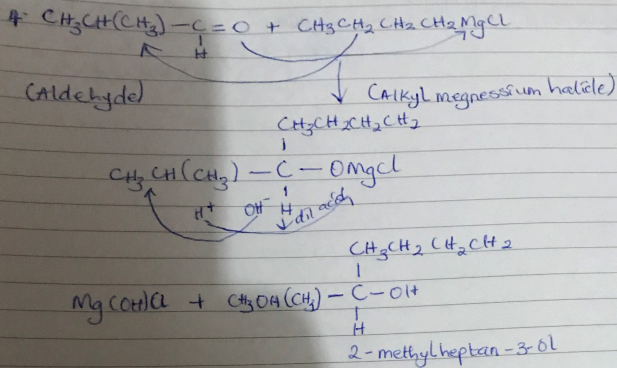 4. CH3CH(CH3) - C = O + CH3CH2CH2CH2MgCl
H
(Aldehyde) (Alkyl megnessium halide)
CH3CH2CH2CH2
CH3CH(CH3) - C - OMgCl
H+ OH- H dil acid
CH3CH2CH2CH2
Mg(OH)Cl + CH3OH(CH3) - C - OH
H
2-methylheptan-3-ol